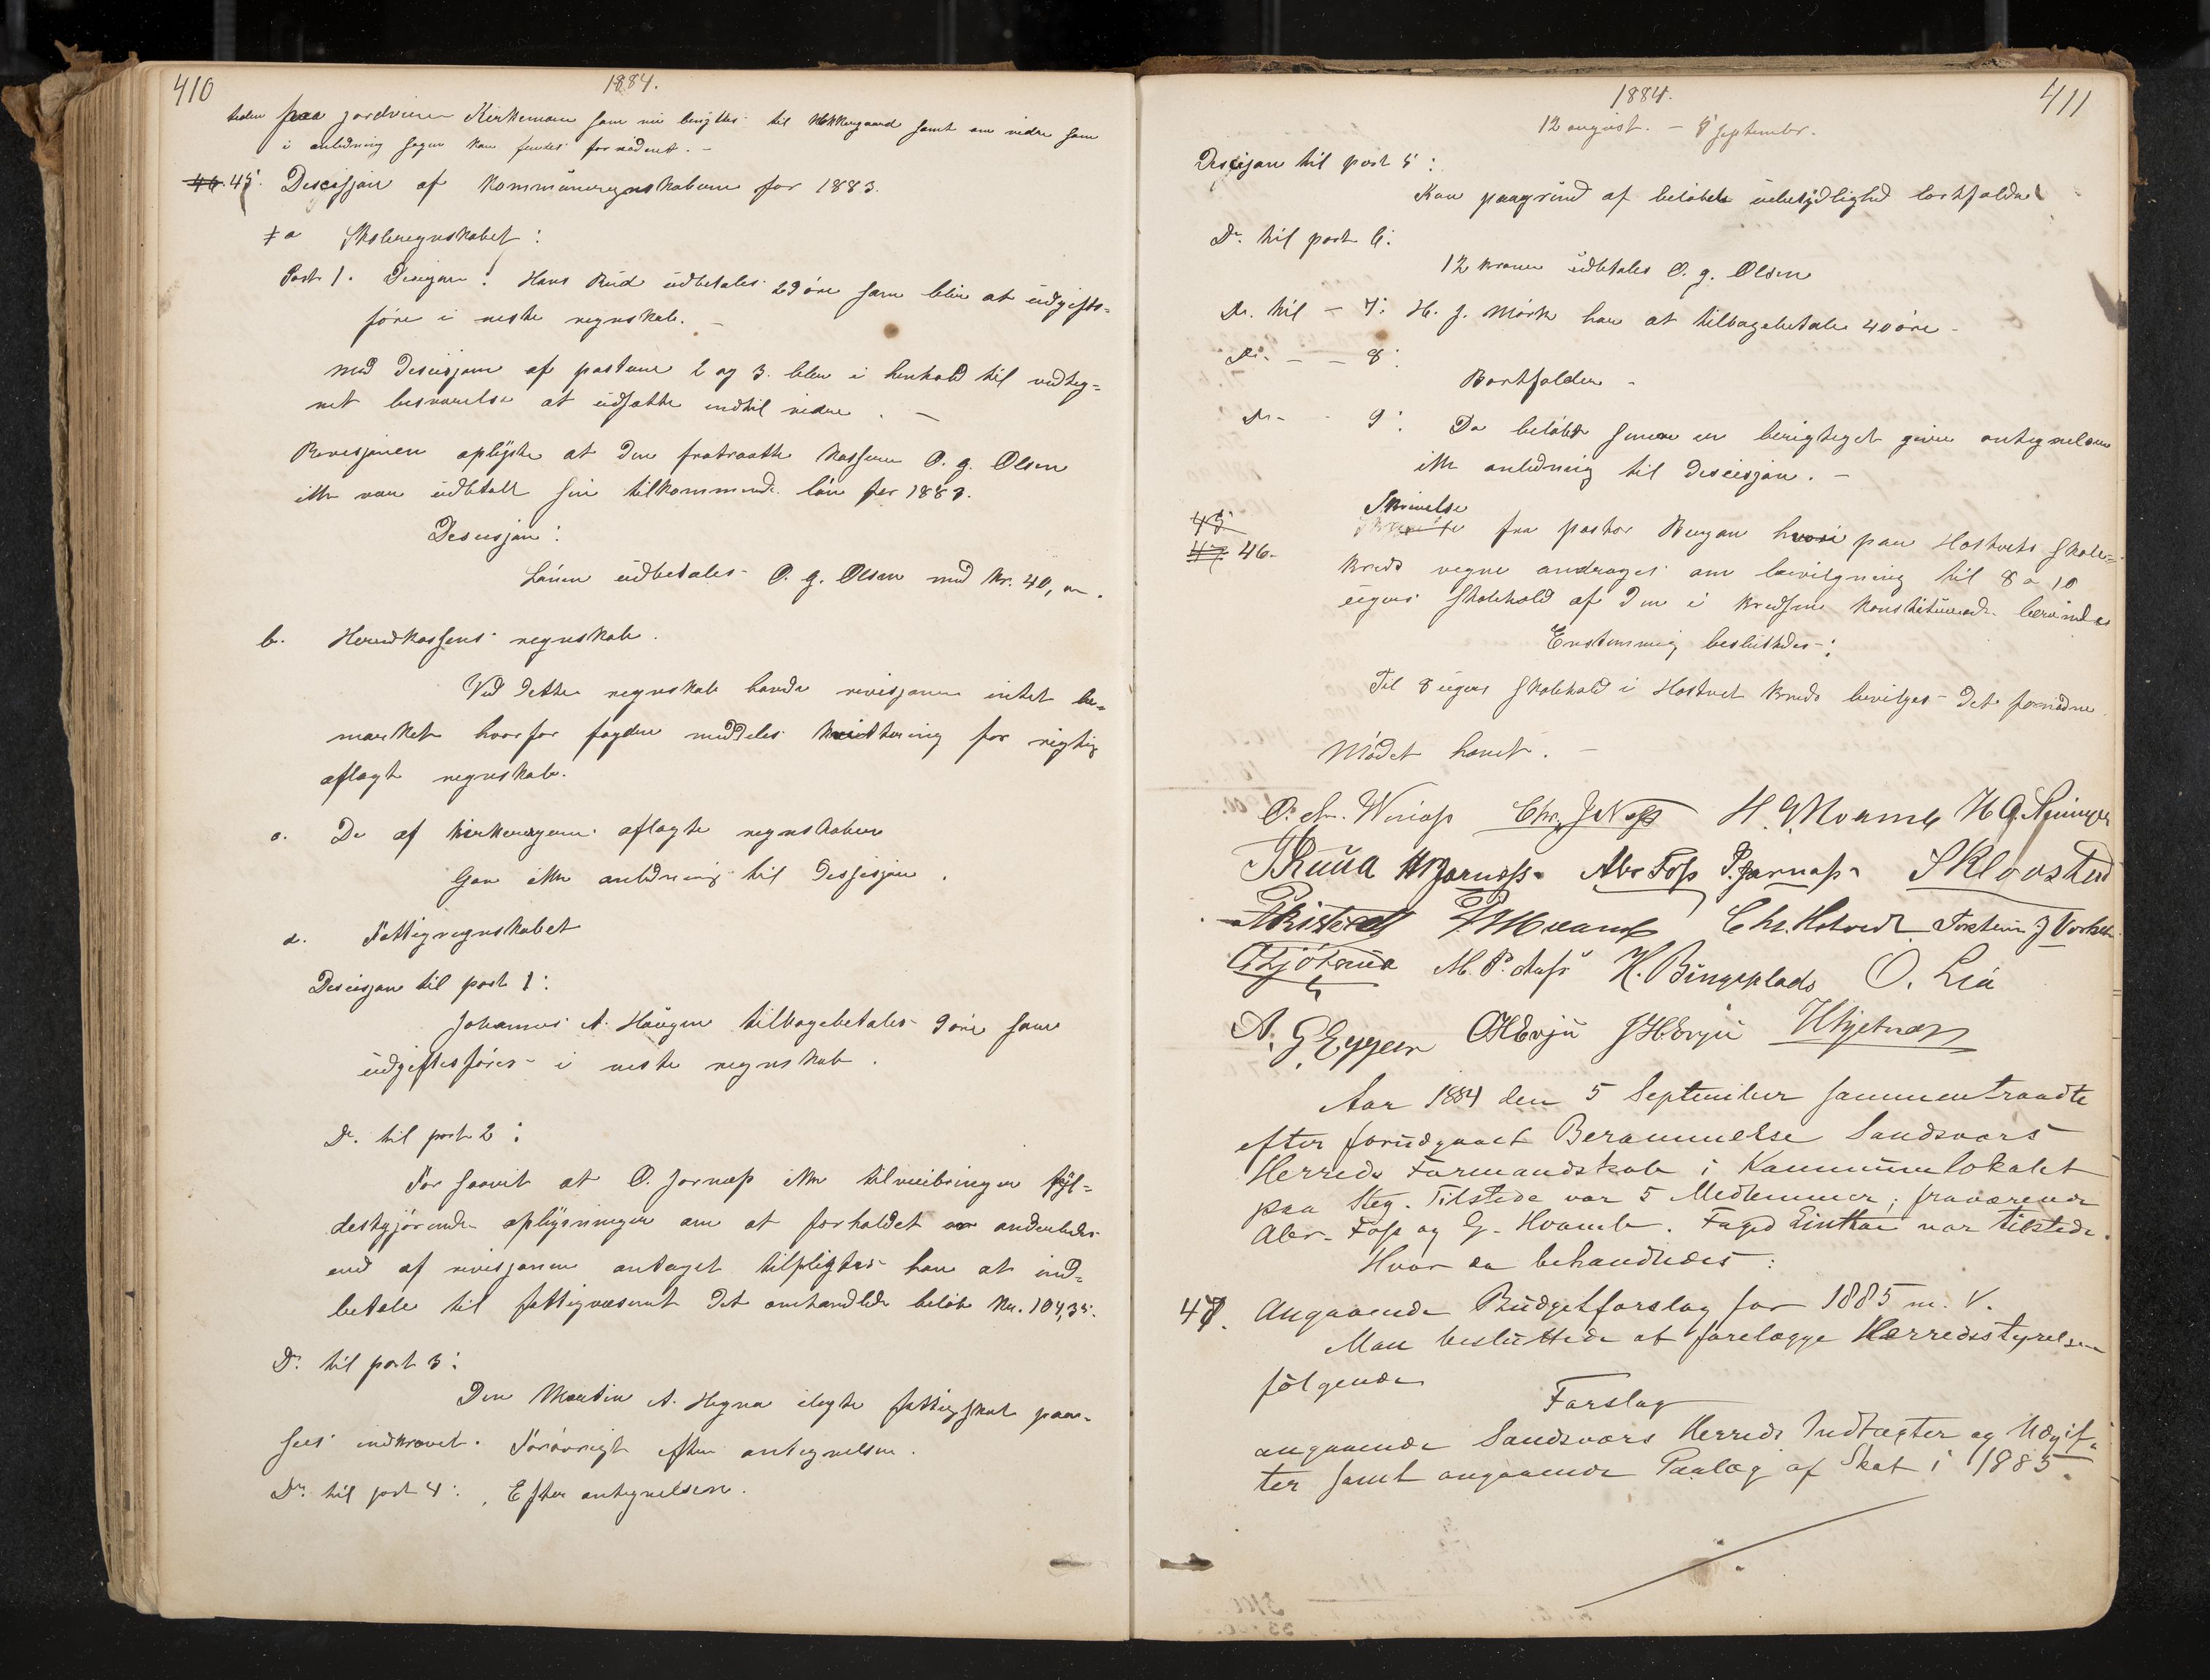 410
1884.
paa jordveien Kirkemoen som nu benyttes til Kirkegaard samt om videre som
i anledning sagen kan findes fornødent. -
46. 45. Descisjon af Kommuneregnskaberne for 1883.
a Skoleregnskabet:
Post 1. Descisjon: Hans Rud udbetales 29 øre som blir at udgifts-
føre i neste regnskab. -
med Descisjon af posterne 2 og 3. blev i henhold til vedteg-
net besvarelse at udsætte indtil videre. -
Revisjonen oplyste at den fratraadte kasserer O. G. Olsen
ikke var udbetalt sin tilkommende løn for 1883.
Descisjon:
Lønen udbetales O. G. Olsen med Kr. 40,
b. Herredkassens regnskab.
Ved dette regnskab havde revisjonen intet be-
mærket hvorfor fogden meddeles kvittering for rigtig
aflagt regnskab.
c. De af kirkeværgerne aflagte regnskaber
Gav ikke anledning til Dessisjon.
d. Fattigregnskabet
Descisjon til post 1:
Johannes A. Haugen tilbagebetales 9 øre som
udgiftesføres i neste regnskab.
Do. til post 2:
For saavit at O. Jornæss ikke tilveiebringer fyl-
destgjørende oplysninger om at forholdet er anderledes
end af revisjonen antaget tilpligtes han at ind-
betale til fattigvæsenet det omhandlede beløb Kr. 104,35.
Do. til post 3:
Den Martin A. Hegna ilagte fattigskat paa-
sees indkrævet. Forøvrigt efter antegnelsen.
Do. til post 4: Efter antegnelsen.
1884.
411
12 august. - 5 septembr.
Descisjon til post 5:
Kan paagrund af beløbets ubetydlighed bortfalde
Do. til post 6:
12 kroner udbetales O. G. Olsen
Do. til - 7: H. J. Mørk har at tilbagebetale 40 øre -
Do. - - 8:
Bortfalder -
Do - - 9: Da beløbet senere er berigtiget giver antegnelsen
ikke anledning til descisjon. -
Skrivelse
45
47 46. fra pastor Bugge hvori paa Hostvets skole-
kreds vegne andrages om bevilgning til 8 a 10
ugers skolehold af den i kredsen konstituerede lærerinde
Enstemmig besluttedes:
Til 8 ugers skolehold i Hostvet kreds bevilges det fornødne
Mødet hævet. -
Chr. J Næss
Abr Foss P. Jornæss
Chr. Hotvedt
O. Lia
Aar 1884 den 5 September sammentraadte
efter forudgaaet Berammelse Sandsværs
Herreds Formandskab i Kommunelokalet
paa Steg. Tilstede var 5 Medlemmer; fraværende
Abr. Foss og G. Hvamb. Foged Linthoe var tilstede.
Hvor da behandledes:
47. Angaaende Budgetforslag for 1885 m. V.
Man besluttede at forelægge Herredsstyrelsen
følgende
Forslag
angaaende Sandsværs Herreds Indtægter og Udgif-
ter samt angaaende Paalæg af Skat i 1885.